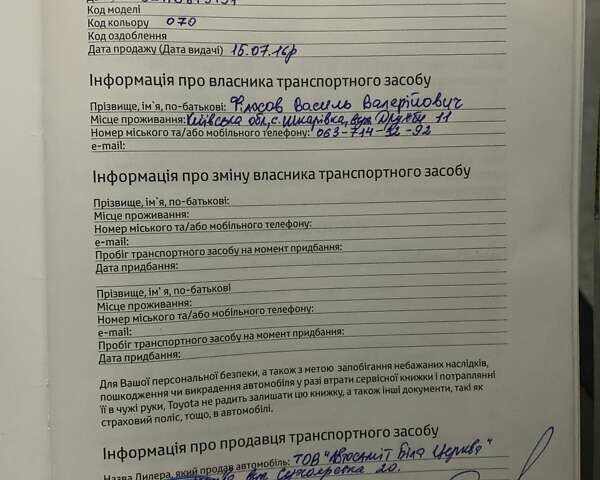 Код моделі
Код кольору 070
Код оздоблення
Дата продажу (Дата видачі) 15.07.16р
Інформація про власника транспортного засобу
Прізвище, ім'я, по-батькові: Філюсов Василь Валерійович
Місце проживання: Київська обл, с. Шкарівка, вул Дружби 11
Номер міського та/або мобільного телефону: 063-714-92-92
e-mail:
Інформація про зміну власника транспортного засобу
Прізвище, ім'я, по-батькові:
Місце проживання:
Номер міського та/або мобільного телефону:
e-mail:
Пробіг транспортного засобу на момент придбання:
Дата придбання:
Прізвище, ім'я, по-батькові
Місце проживання:
Номер міського та/або мобільного телефону:
e-mail:
Пробіг транспортного засобу на момент придбання:
Дата придбання:
Для Вашої персональної безпеки, а також з метою запобігання небажаних наслідків,
пошкодження чи викрадення автомобіля у разі втрати сервісної книжки і потраплянні
її в чужі руки, Toyota не радить залишати цю книжку, а також інші документи, такі як
страховий поліс, тощо, в автомобілі.
Інформація про продавця транспортного засобу
Назва Дилера, який продав автомобіль: ТОВ "Автосаміт Біла Церква"
вул. 20.